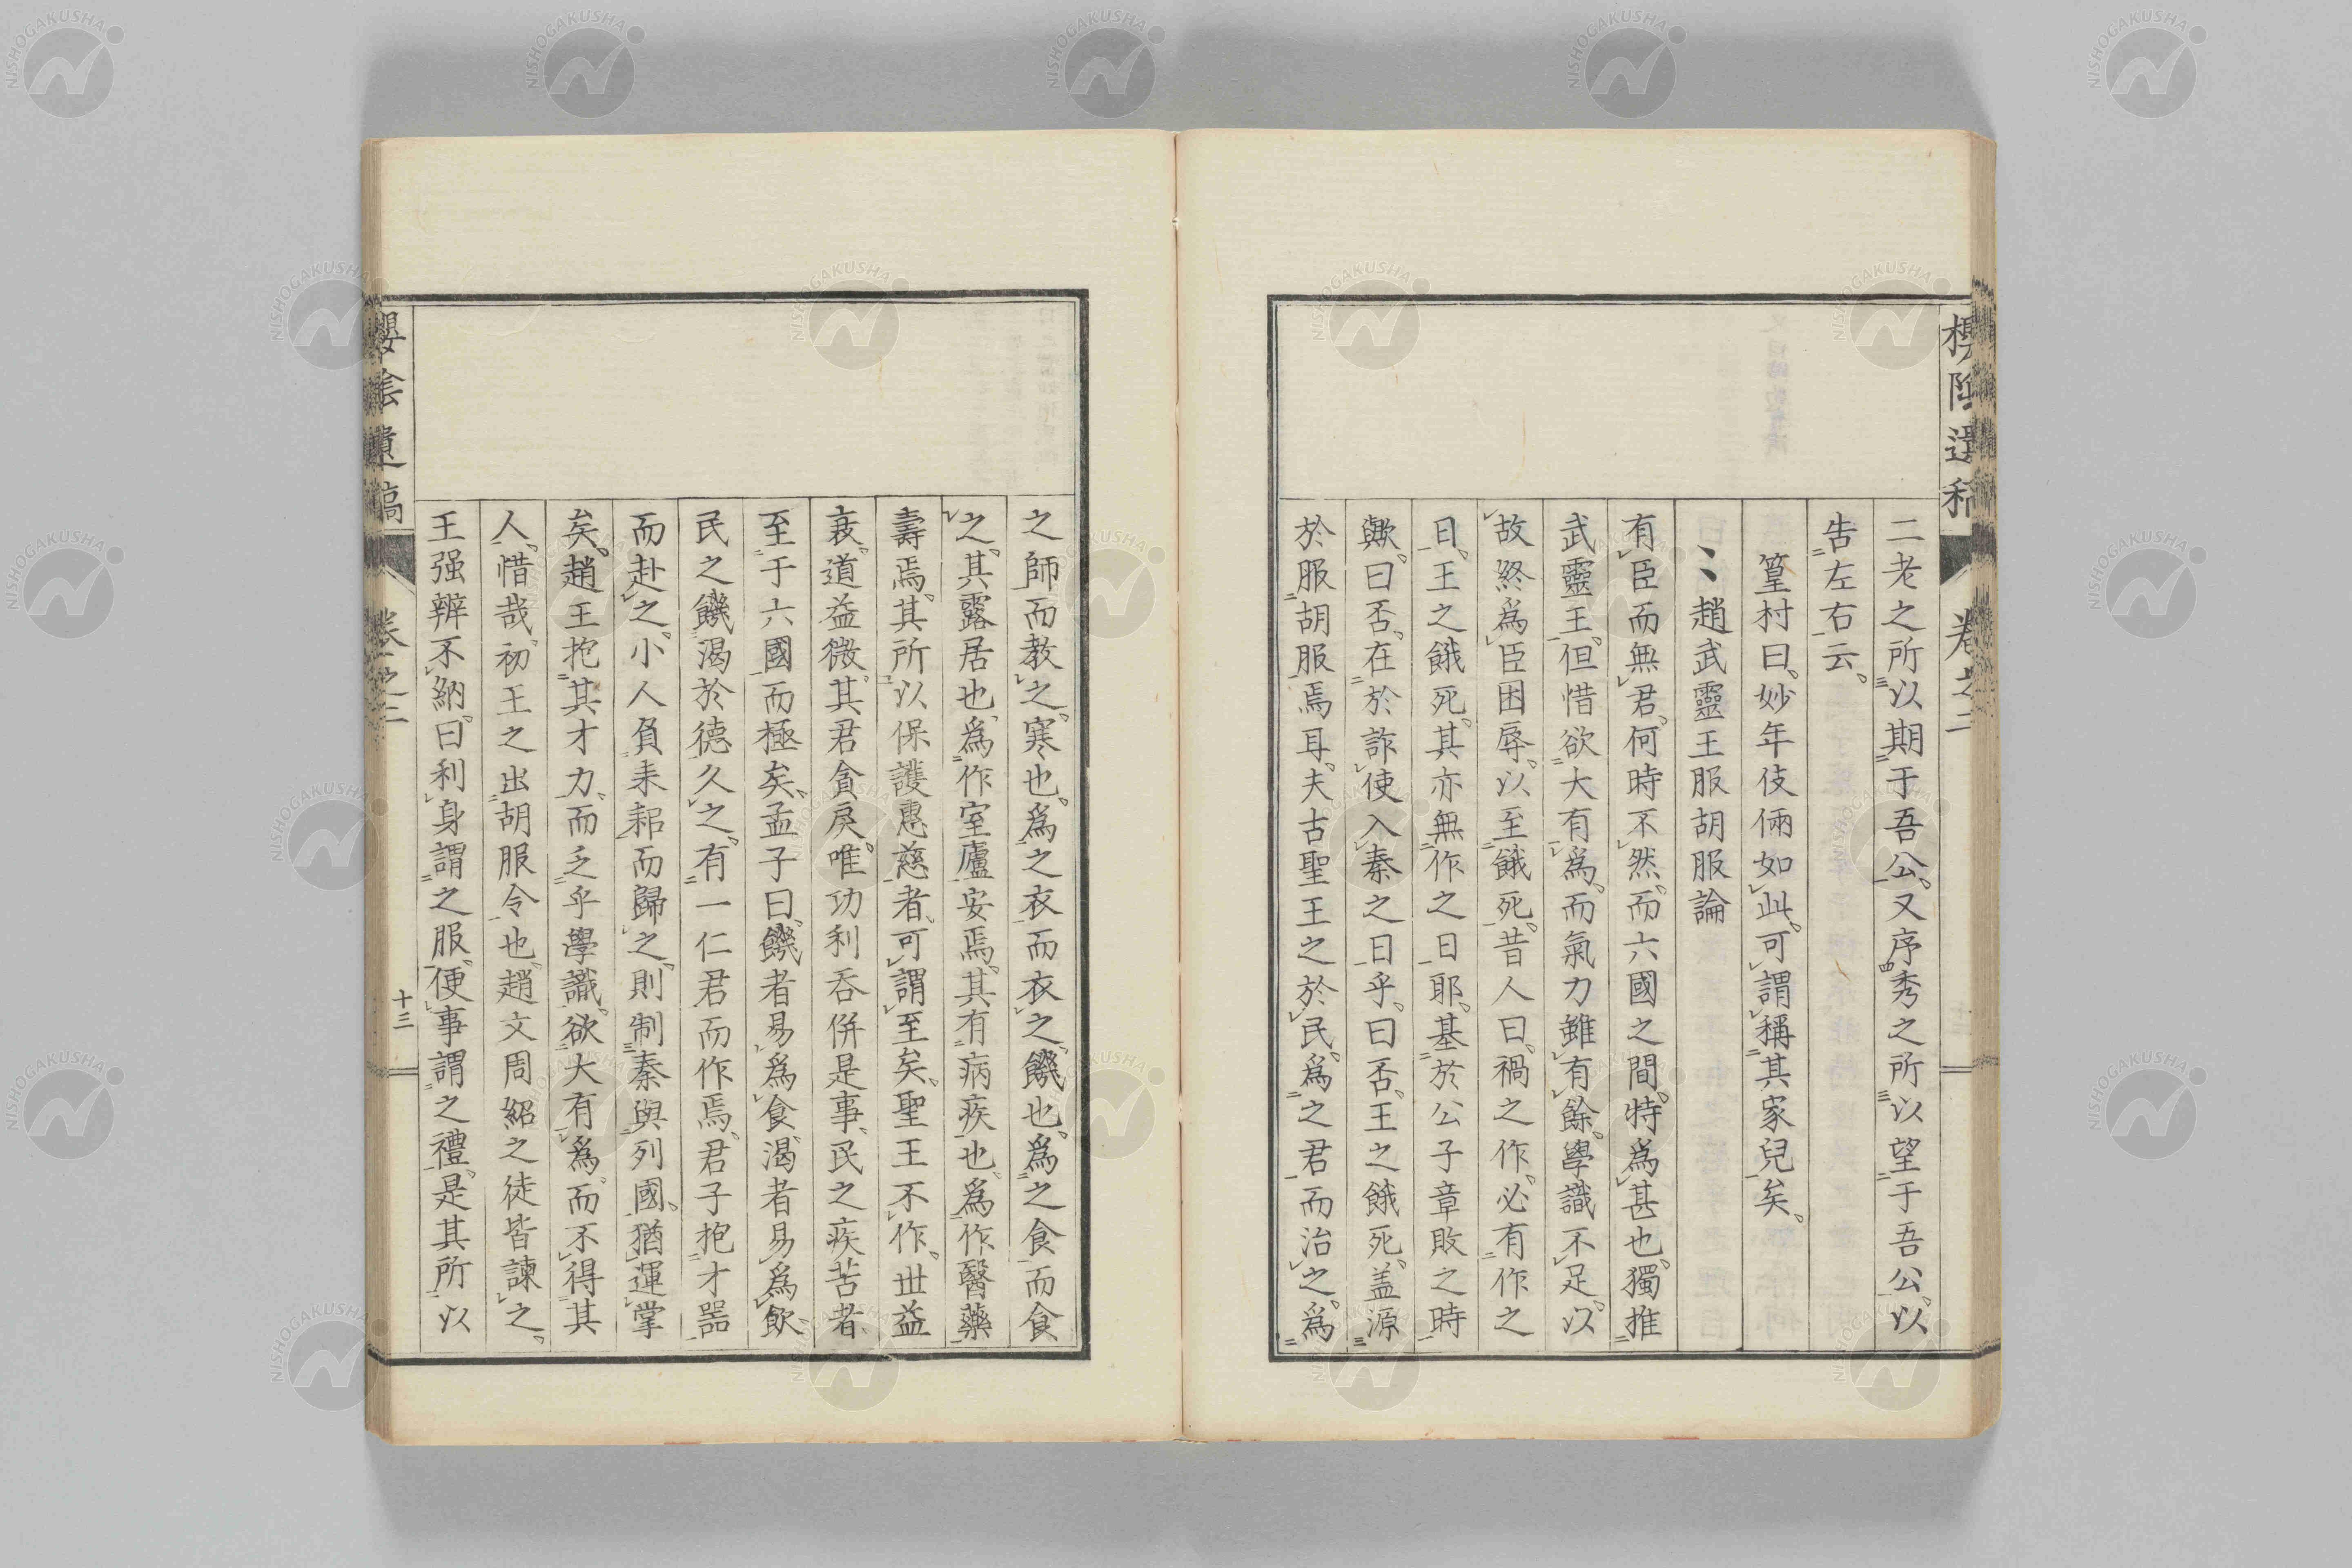 二老之所以期于吾公。又序秀之所以望于吾公。以
告左右云。
篁村曰。妙年伎倆如此。可謂稱其家兒矣。
趙武靈王服胡服論
有臣而無君。何時不然。而六國之間。特爲甚也。獨推
武靈王。但惜欲大有爲。而氣力雖有餘。學識不足。以
故終爲臣困辱。以至餓死。昔人曰。禍之作。必有作之
日。王之餓死。其亦無作之日耶。基於公子章敗之時
歟。曰否。在於詐使入秦之日乎。曰否。王之餓死。盖源
於服胡服焉耳。夫古聖王之於民。爲之君而治之。爲
之師而教之。寒也。爲之衣而衣之。饑也。爲之食而食
之。其露居也。爲作室廬安焉。其有病疾也。爲作醫藥
壽焉。其所以保護惠慈者。可謂至矣。聖王不作。世益
衰。道益微。其君貪戾。唯功利吞併是事。民之疾苦者。
至于六國而極矣。孟子曰。饑者易爲食。渴者易爲飲。
民之饑渴於德久之。有一仁君而作焉。君子抱才器
而赴之。小人負耒耜而歸之。則制秦與列國。猶運掌
矣。趙王抱其才力。而乏乎學識。欲大有爲。而不得其
人。惜哉。初王之出胡服令也。趙文周紹之徒皆諫之。
王强辨不納。曰利身謂之服。便事謂之禮。是其所以
櫻陰遺稿
卷之二
十三